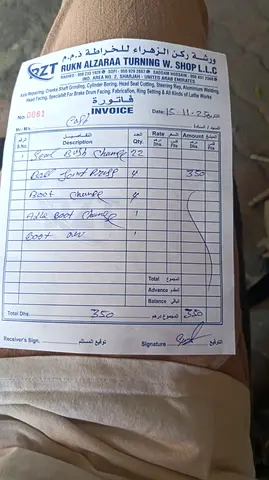 ورشة ركن الزهراء للخراطة ذ.م.م
RZT RUKN ALZARAA TURNING W. SHOP L.L.C
IND. AREA NO. 2, SHARJAH - UNITED ARAB EMIRATES
Axle Repairing, Cranks Shaft Grinding, Cylinder Boring, Head Seat Cutting, Steering Rep, Aluminium Welding,
Head Facing, Specialist For Brake Drum Facing, Fabrication, Ring Setting & All Kinds of Lathe Works
فاتورة
INVOICE
No. 0081
Date: 15-11-25 التاريخ
Mr./M/s. Cash
التفاصيل
Description
S.No.
Qty.
Rate السعر
Dhs. Fils
Amount المبلغ
Dhs. Fils
1 Seal Bush Change 22
Ball Joint 4 350
Boot Change 4
Axle Boot Change 1
Boot 1
Total المجموع
Advance
Balance
Total Dhs. 350 المجموع درهم 350
Receiver's Sign. توقيع المستلم
Signature التوقيع